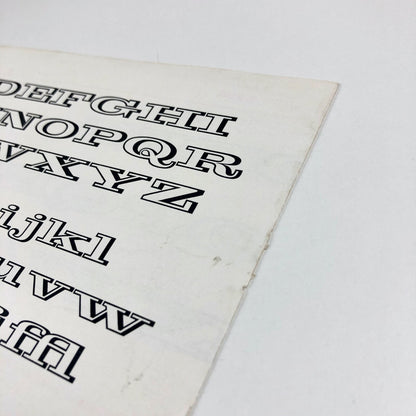 DEFGHI
NOPQR
WXYZ
ijkl
uvw
ffl